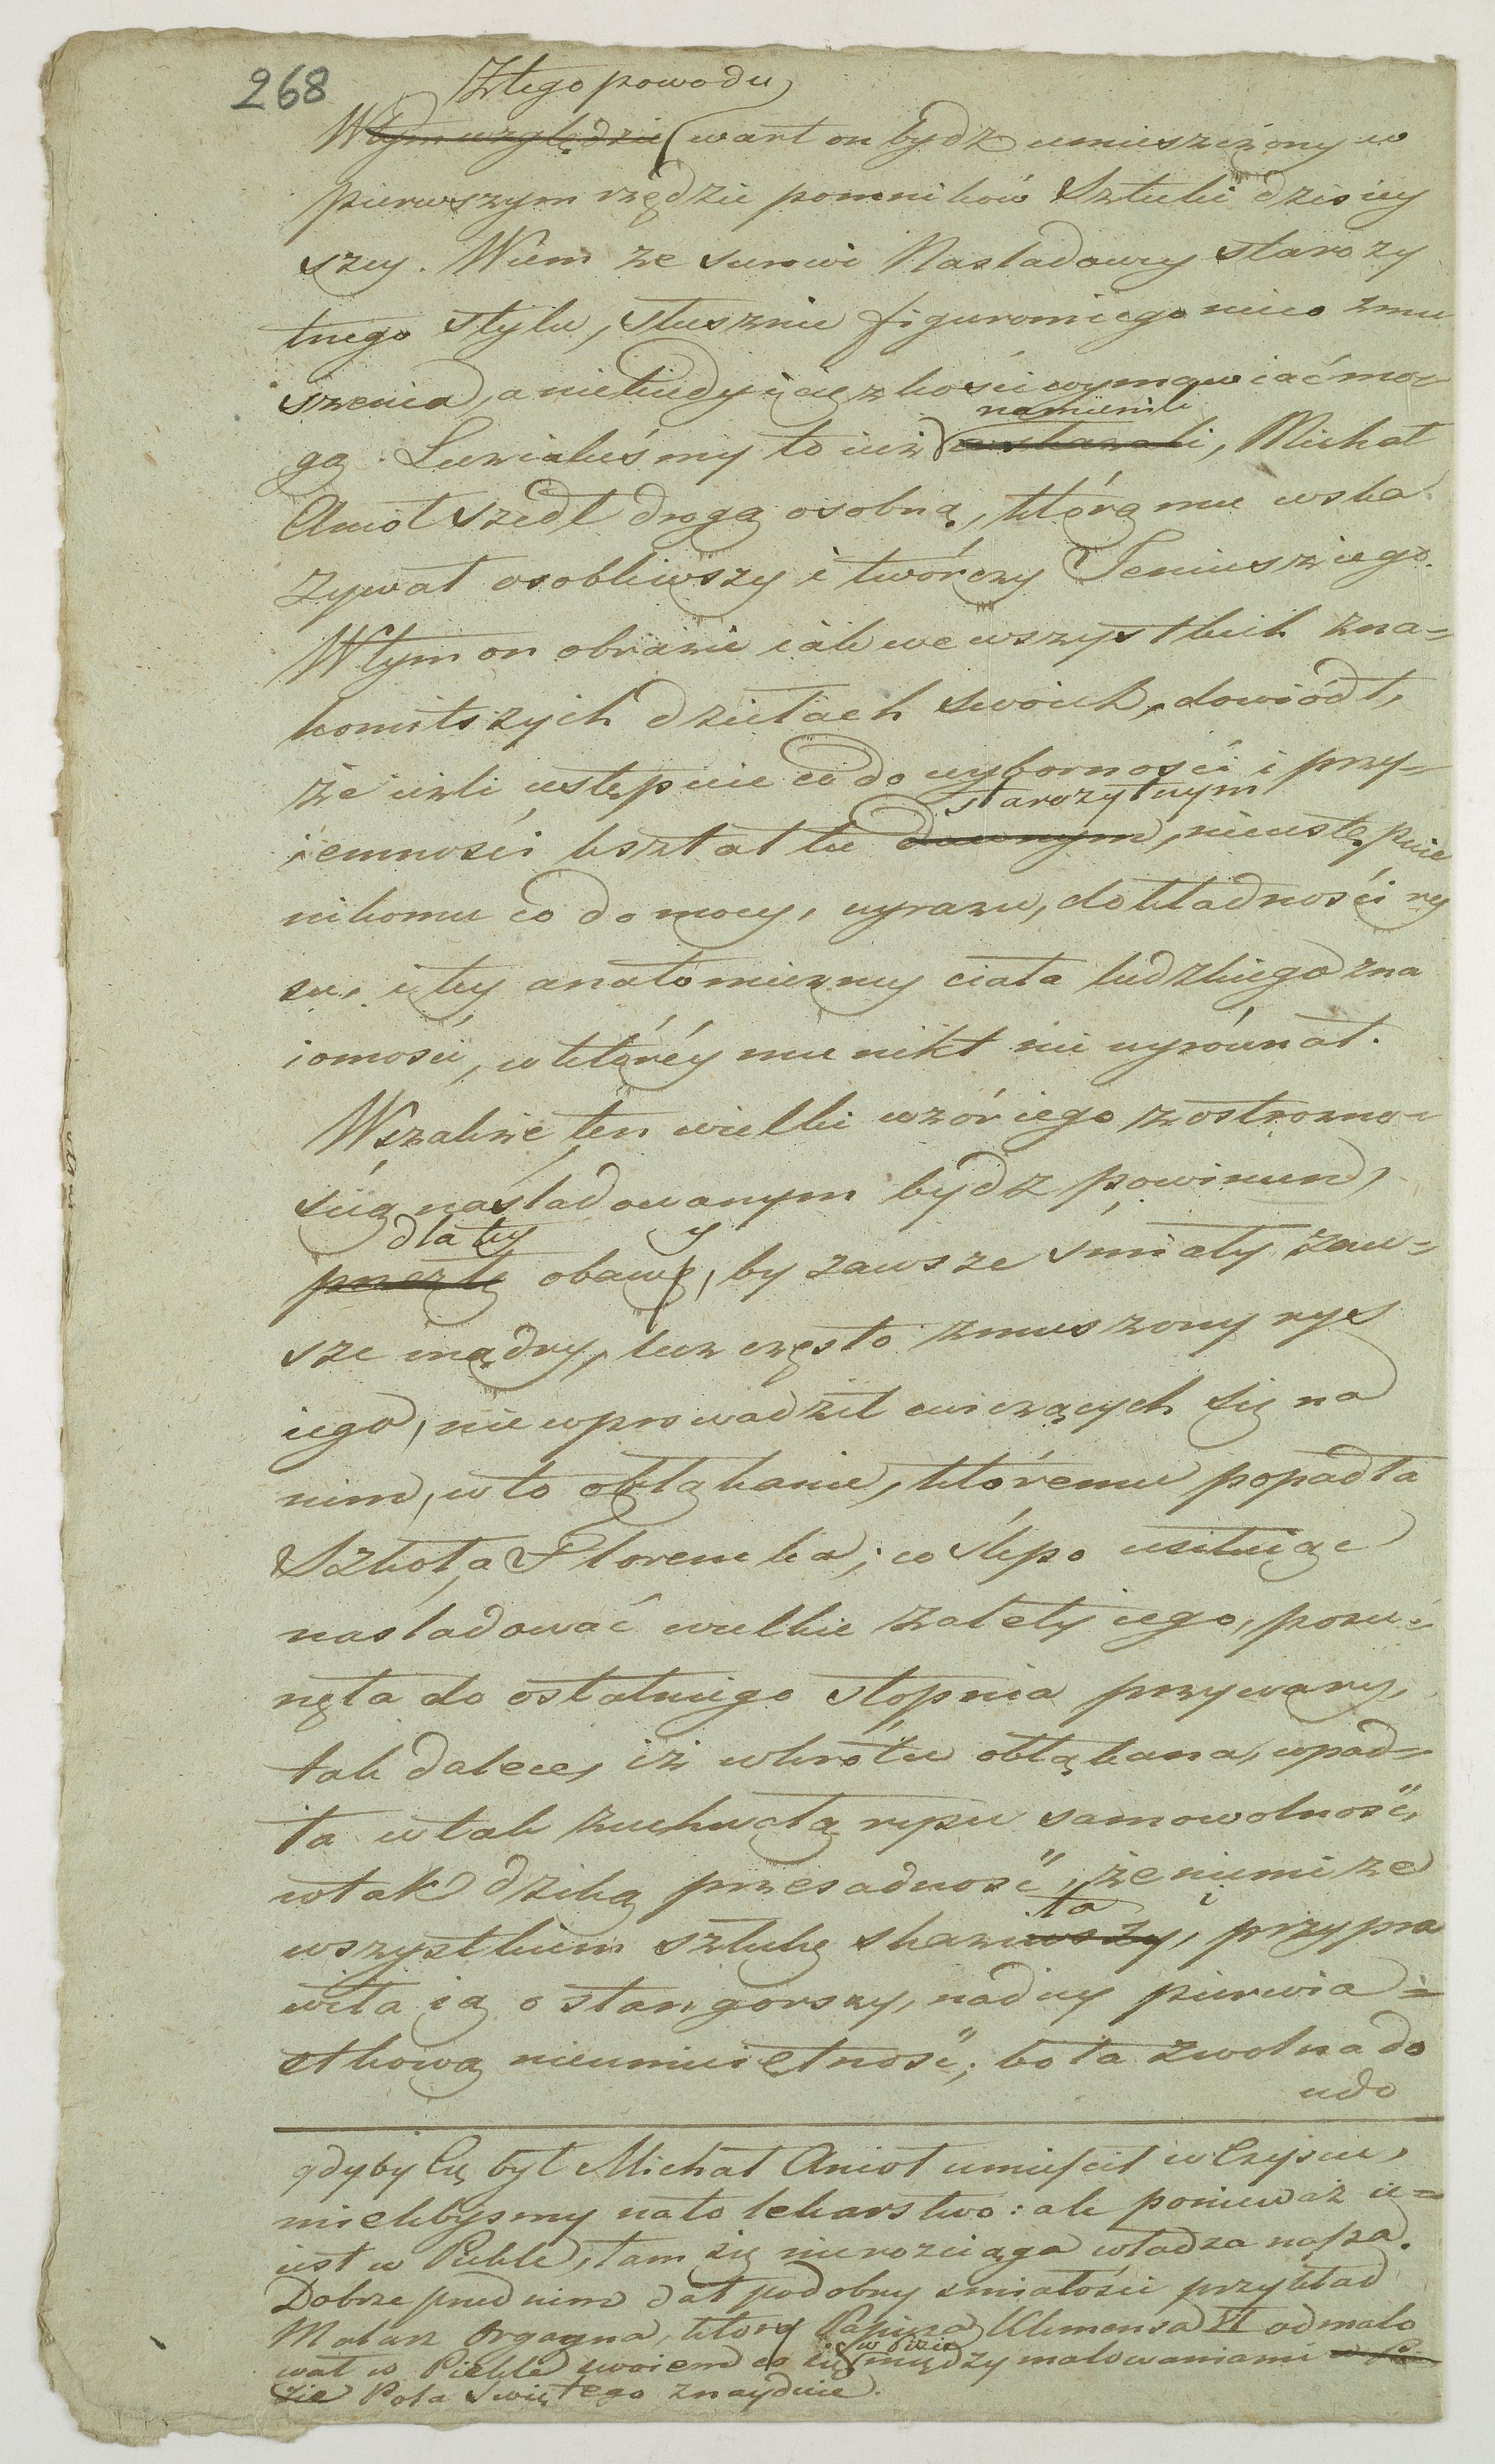 268
Z tego powodu
W tym względzie wart on bydz umieszczony w
pierwszym rzędzie pomników Sztuki dzisiey
szey. Wiem że surowi Naśladowcy staroży
tnego stylu, słusznie figurom iego nieco zmu
szenia, a niekiedy i ciężkości wymawiać mo-
gą. Lecz iakeśmy to iuż namienili
wskazali, Michał
Anioł szedł drogą osobną, którą mu wska
zywał osobliwszy i twórczy Geniusz iego.
W tym on obrazie iak we wszystkich zna=
komitszych dziełach swoich, dowiódł,
że ieżli ustępuie co do wyborności i przy=
iemności kształtu starożytnym
dawnym, nieustępuie
nikomu co do mocy, wyrazu, dokładności ry
su, i tey anatomiczney ciała ludzkiego zna
iomości, w którey mu nikt nie wyrównał.
Wszakże ten wielki wzór iego z ostrożno=
ścią naśladowanym bydz powinien,
dla tey y
przez tę obawę, by zawsze śmiały zaw=
sze mądry, lecz często zmuszony rys
iego, nie wprowadził cwiczących się na
nim, w to obłąkanie, któremu popadła
Szkoła Florencka; co ślepo usiłuiąc
naśladować wielkie zalety iego, posu=
nęła do ostatniego stopnia przywary,
tak dalece, iż wkrótce obłąkana, wpad=
ła w tak zuchwałą rysu samowolność,
w tak dziką przesadność, że niemi ze
wszystkiem sztukę skaziwszy, ła i przypra
wiła ią o stan gorszy, nad iey pierwia=
stkową nieumieiętność; bo ta zwolna do
udo
gdyby Cię był Michał Anioł umieścił w Czyscu,
mielibysmy na to lekarstwo: ale ponieważ ie=
iest w Piekle, tam się nierozciąga władza nasza.
Dobrze przed nim dał podobny smiałości przykład
Malarz Orgagna, który Papieża Klemensa VI odmalo
wał w Piekle swoiem co się w Pizie między malowaniami w Pi
zie Pola Swiętego znayduie.